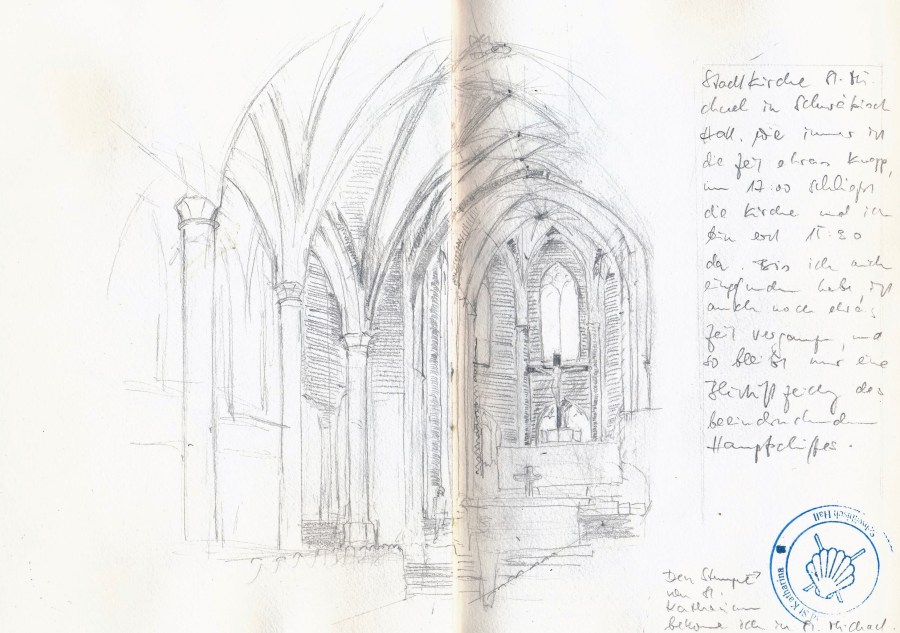 Stadtkirche St. Mi-
chael in Schwäbisch
Hall. Wie immer ist
die Zeit etwas knapp,
um 17:00 schließt
die Kirche und ich
bin erst 15:20
da. Bis ich mich
eingefunden habe, ist
auch noch etwas
Zeit vergangen, und
so bleibt nur eine
des
beeindruckenden
Hauptschiffes.
Den Stempel
von St.
Katharina
bekomme ich in St. Michael.
Schwäbisch Hall
St. Kathari